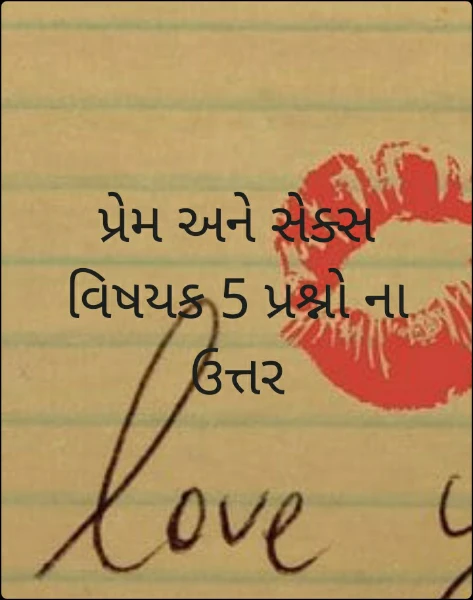 પ્રેમ અને સેક્સ
વિષયક 5 પ્રશ્નો ના
ઉત્તર
love y